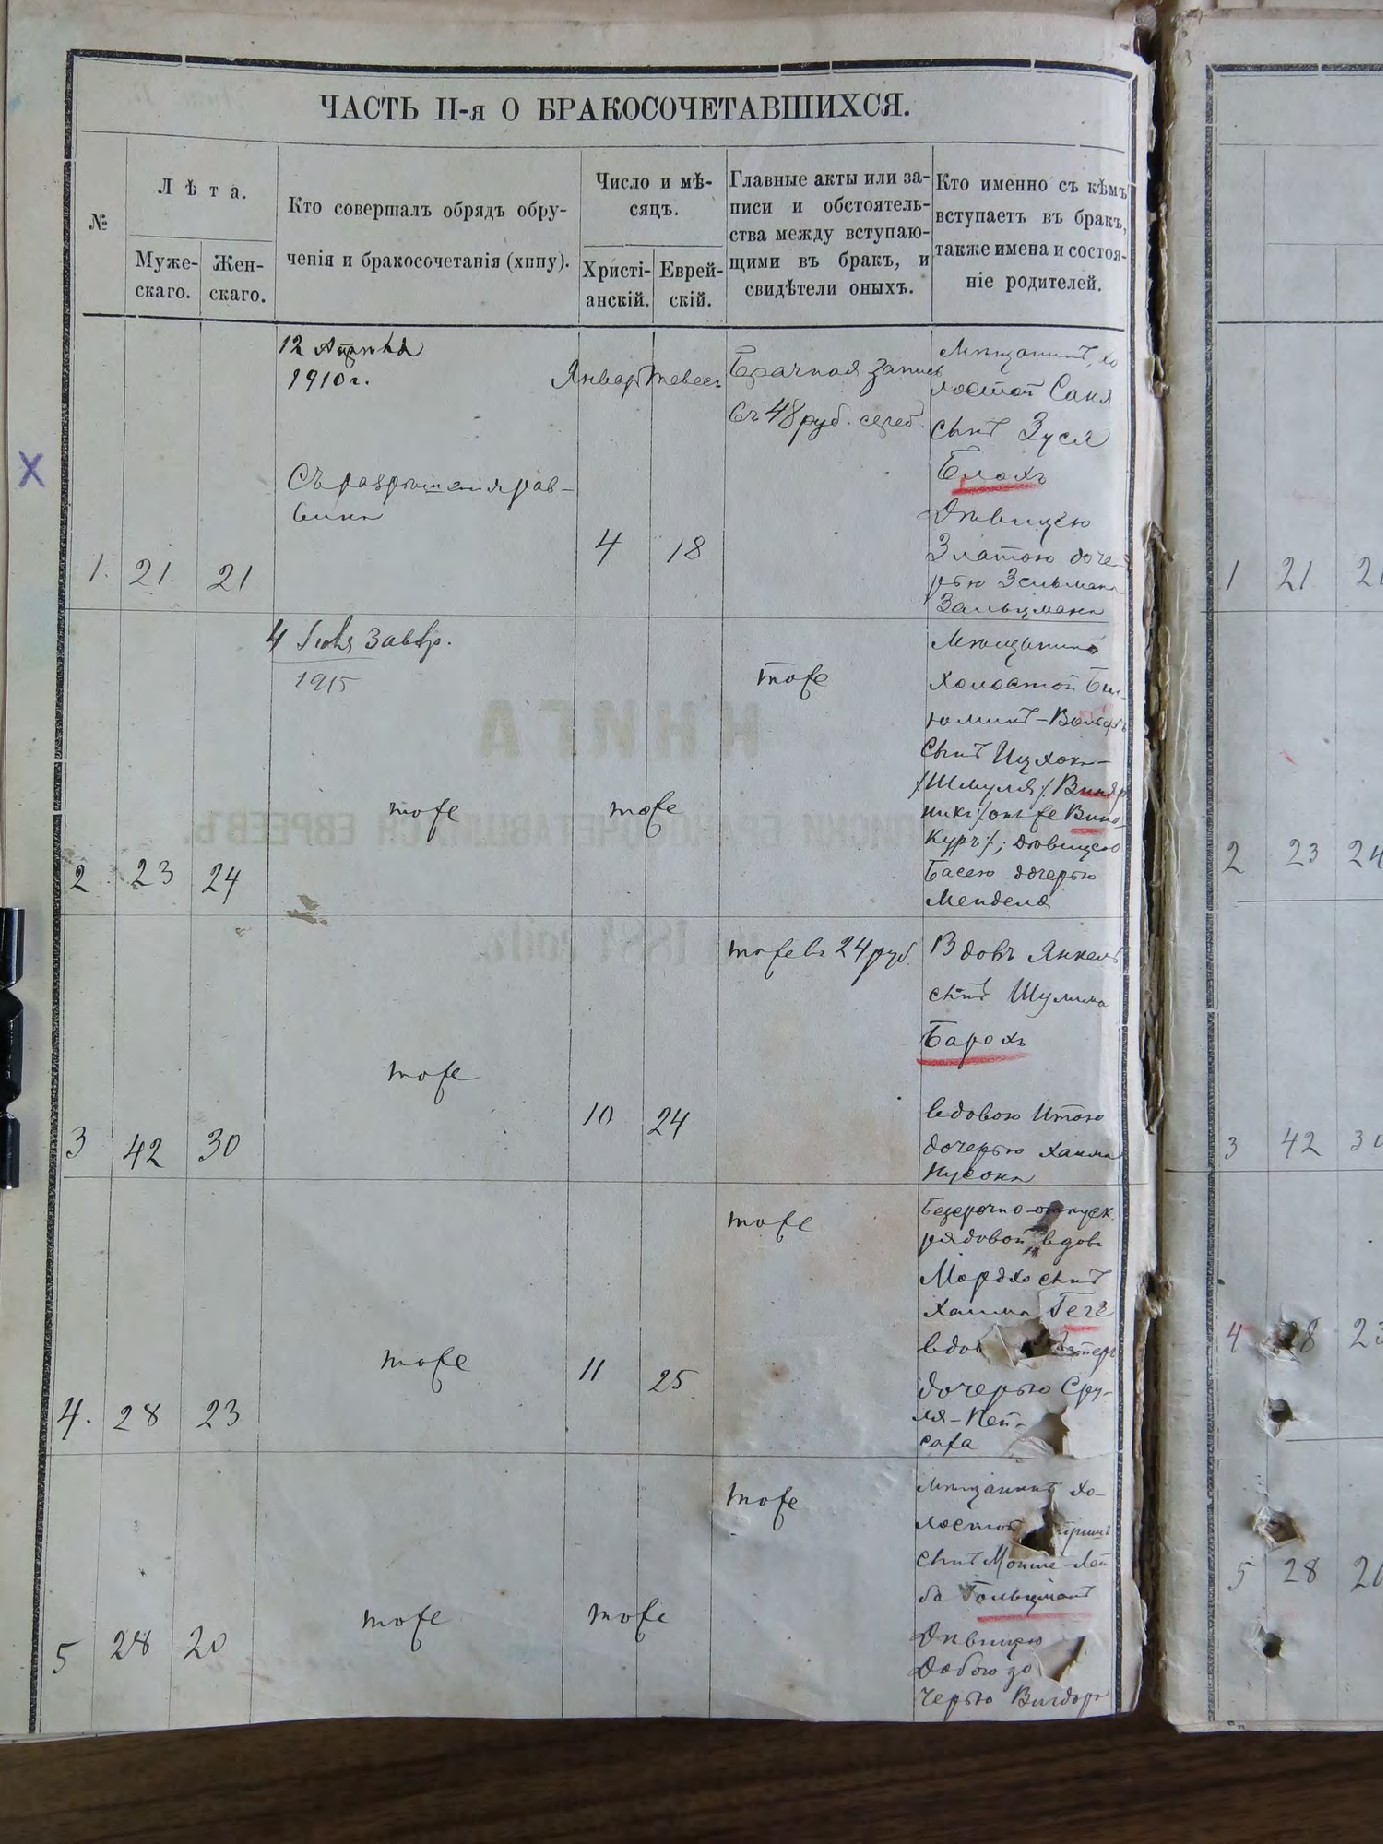 ЧАСТЬ II-я О БРАКОСОЧЕТАВШИХСЯ.
№
Лѣта.
Муже-
скаго.
Жен-
скаго.
Кто совершалъ обрядъ обру-
ченія и бракосочетанія (хипу).
Число и мѣ-
сяцъ.
Христі-
анскій.
Еврей-
скій.
Главные акты или за-
писи и обстоятель-
ства между вступаю-
щими въ бракъ, и
свидѣтели оныхъ.
Кто именно съ кѣмъ
вступаетъ въ бракъ,
также имена и состоя-
ніе родителей.
12
1910 г.
Съ разрѣшенія рав-
вина
Январь
Тевес
Брачная запись
въ 48 руб. сереб.
Мѣщанинъ, хо
лостой Саня
сынъ Зуся
Блохъ
Дѣвицею
Златою доче-
рью Зельмана
Зальцмана
1. 21 21
4 18
4 Іюля Завѣр.
1915
тоже
тоже
тоже
Мѣщанинъ
холостой Бин-
юминъ-Вольфъ
сынъ Ицхока-
/Шмуля/ Винар
никъ /онъ же Вино-
куръ/; дѣвицею
Басею дочерью
Менделя
2 23 24
тоже въ 24 руб.
Вдовъ Янкель
сынъ Шулима
Барохъ
вдовою Итою
дочерью Хаима
Нусона
тоже
3 42 30
10 24
тоже
Безсрочно-отпуск.
рядовой, вдовъ
Мордхо сынъ
Хаима
вдов
дочерью Сру-
ля-Пей-
саха
тоже
4. 28 23
11 25
тоже
Мѣщанинъ хо-
лостой
сынъ Мошке-Лей
ба Гольцманъ
Дѣвицею
Добою до
черью Вигдора
тоже
тоже
5 28 20
1 21 2
2 23 24
3 42 30
4 28 23
5 28 20